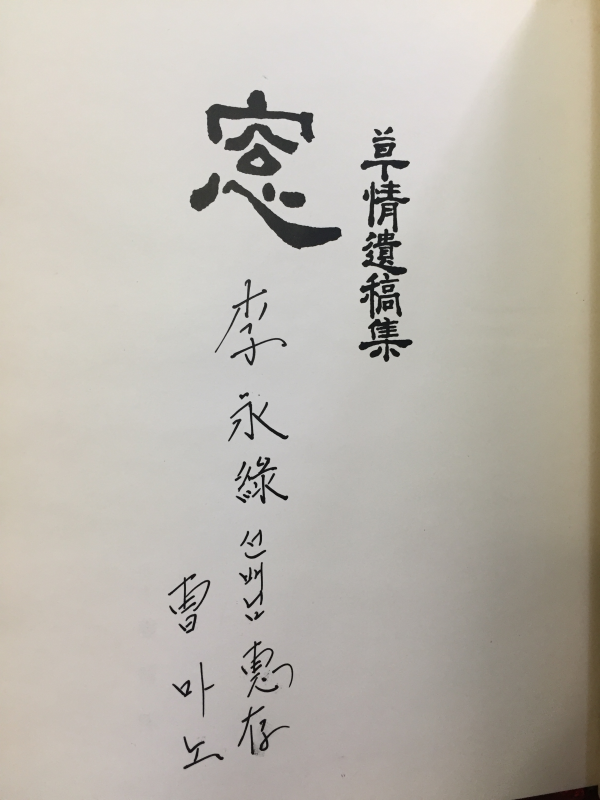 草情遺稿集
窓
李永綠 선배님 惠存
曺마노